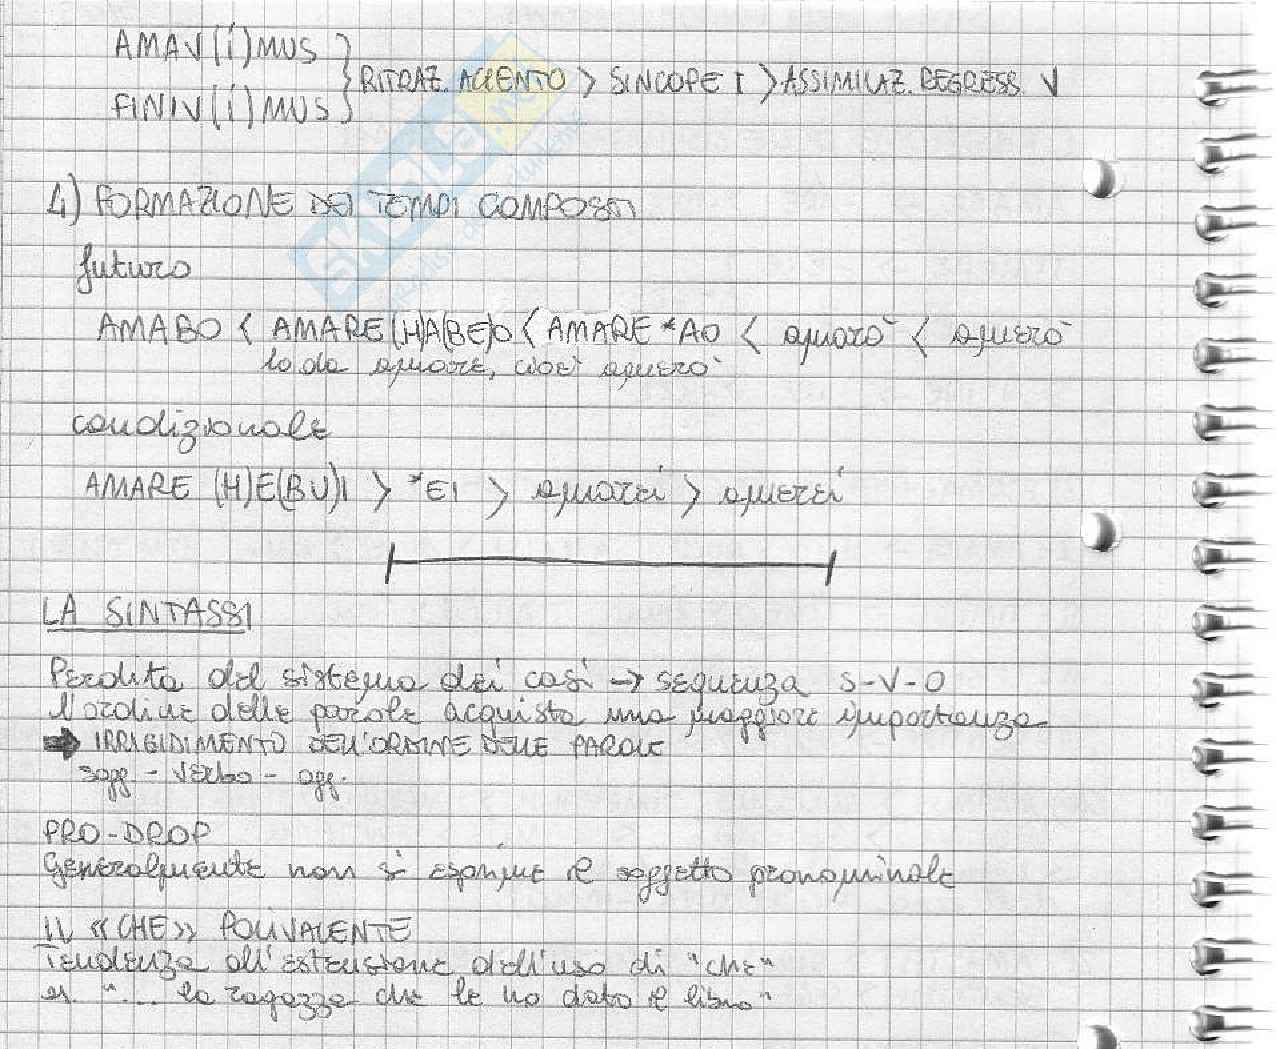 AMAV(Í)MUS
FINIV(Í)MUS
RITRAZ. ACCENTO > SINCOPE I > ASSIMILAZ. REGRESS. V
4) FORMAZIONE DEI TEMPI COMPOSTI
futuro
AMABO < AMARE (H)A(BE)O < AMARE *AO < amarò < amerò
ho da amare, cioè amerò
condizionale
AMARE (H)E(BU)I > *EI > amarei > amerei
LA SINTASSI
Perdita del sistema dei casi → sequenza S-V-O
L'ordine delle parole acquista una maggiore importanza
➡ IRRIGIDIMENTO DELL'ORDINE DELLE PAROLE
sogg - verbo - ogg.
PRO-DROP
Generalmente non si esprime il soggetto pronominale
IL «CHE» POLIVALENTE
Tendenza all'estensione dell'uso di "che"
es. "... la ragazza che le ho dato il libro"
SKUOLA.net